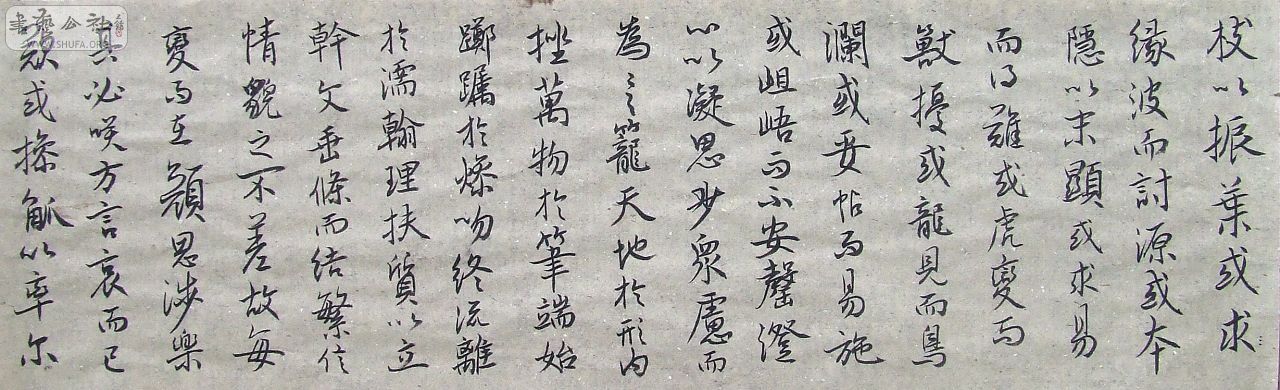 枝以振葉或求
緣波而討源或本
隱以末顯或求易
而得難或虎變而
獸擾或龍見而鳥
瀾或妥帖而易施
或岨峿而不安罄澄
心以凝思眇衆慮而
為言籠天地於形内
挫萬物於筆端始
躑躅於燥吻終流離
於濡翰理扶質以立
幹文垂條而結繁信
情貌之不差故每
變而在顏思涉樂
其必咲方言哀而已
歎或操觚以率尔
書藝公社
WWW.SHUFA.ORG